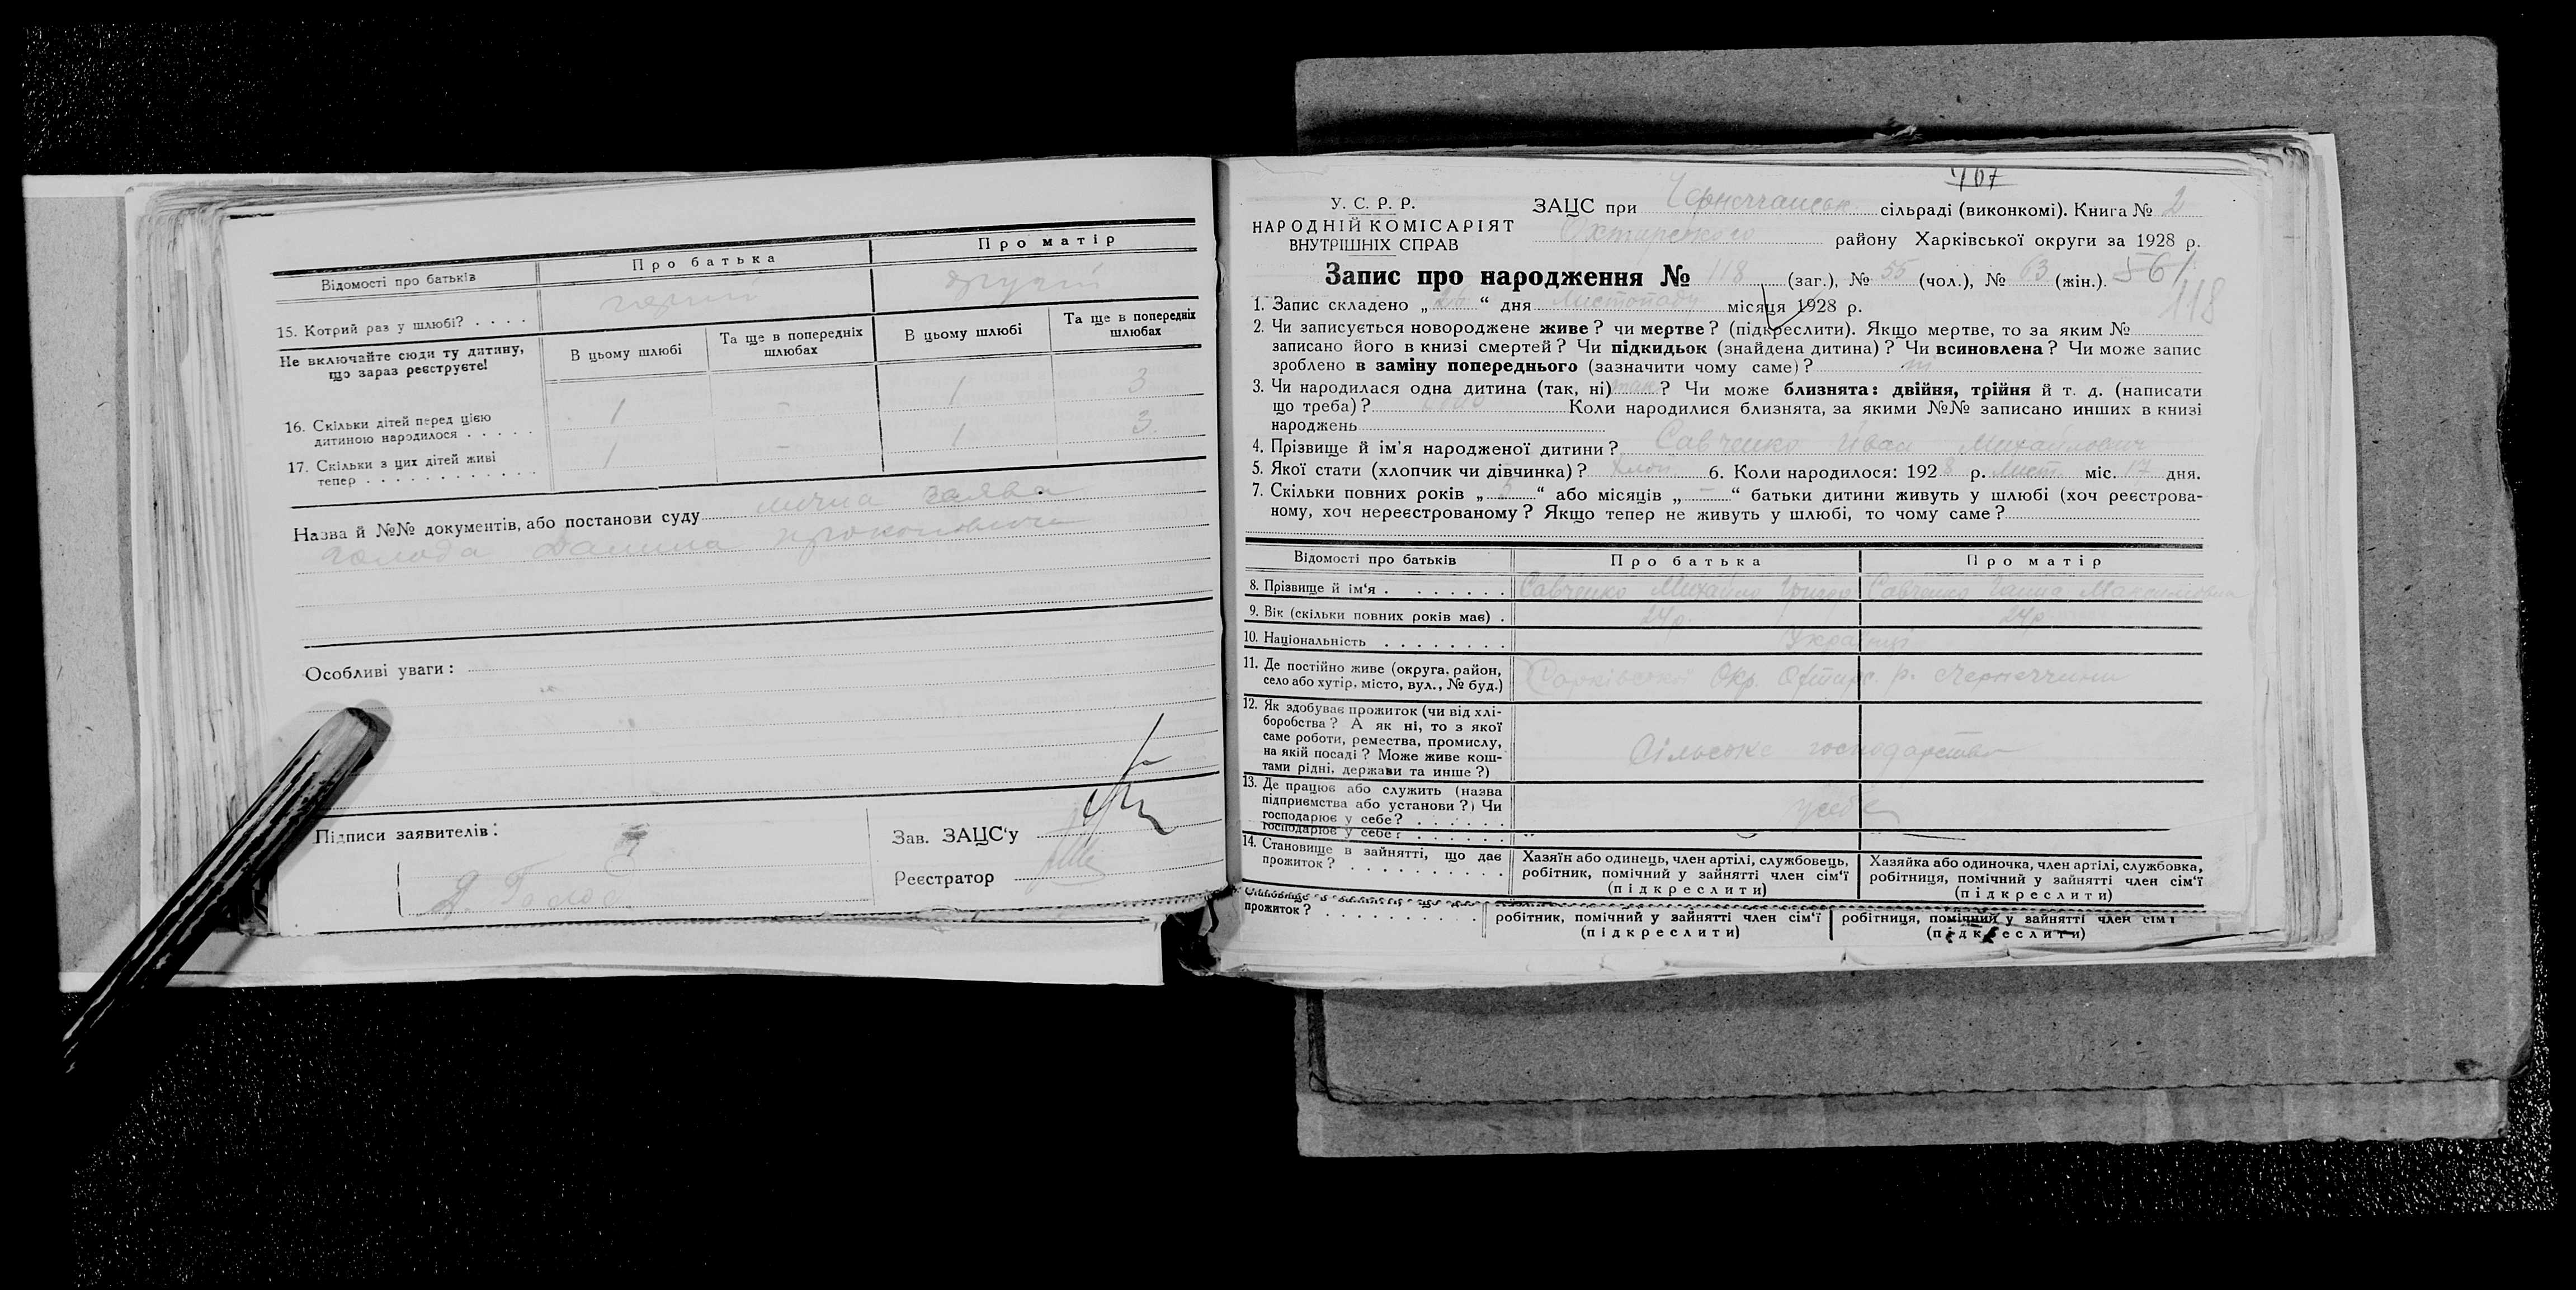 Відомості про батьків
Про батька
Про матір
15. Котрий раз у шлюбі? . . . .
другий
Не включайте сюди ту дитину,
що зараз реєструєте!
В цьому шлюбі
Та ще в попередніх
шлюбах
В цьому шлюбі
Та ще в попередніх
шлюбах
16. Скільки дітей перед цією
дитиною народилося . . . . .
1 - 1 3
17. Скільки з цих дітей живі
тепер . . . . . . . . . .
1 - 1 3
Назва й №№ документів, або постанови суду лична заява
Голода Данила Прокоповича
Особливі уваги:
Підписи заявителів:
Д. Голод
Зав. ЗАЦС'у
Реєстратор
467
У. С. Р. Р.
НАРОДНІЙ КОМІСАРІЯТ
ВНУТРІШНІХ СПРАВ
ЗАЦС при Чернеччанськ. сільраді (виконкомі). Книга № 2
Охтирського району Харківської округи за 1928 р.
Запис про народження № 118 (заг.), № 55 (чол.), № 63 (жін.). 561
118
1. Запис складено „ “ дня Листопаду місяця 1928 р.
2. Чи записується новороджене живе? чи мертве? (підкреслити). Якщо мертве, то за яким №
записано його в книзі смертей? Чи підкидьок (знайдена дитина)? Чи всиновлена? Чи може запис
зроблено в заміну попереднього (зазначити чому саме)?
3. Чи народилася одна дитина (так, ні) так? Чи може близнята: двійня, трійня й т. д. (написати
що треба)? Коли народилися близнята, за якими №№ записано инших в книзі
народжень
4. Прізвище й ім'я народженої дитини? Савченко Иван Михайлович
5. Якої стати (хлопчик чи дівчинка)? хлоп. 6. Коли народилося: 1928 р. Лист. міс. 17 дня.
7. Скільки повних років „ 5 “ або місяців „ – “ батьки дитини живуть у шлюбі (хоч реєстрова-
ному, хоч нереєстрованому? Якщо тепер не живуть у шлюбі, то чому саме?
Відомості про батьків
Про батька
Про матір
8. Прізвище й ім'я . . . . . . . .
Савченко Михайло Григор
Савченко
9. Вік (скільки повних років має) .
24 р.
24 р
10. Національність . . . . . . . .
Українці
11. Де постійно живе (округа, район,
село або хутір, місто, вул., № буд.)
Харківської Окр. Охтирс. р. с Чернеччина
12. Як здобуває прожиток (чи від хлі-
боробства? А як ні, то з якої
саме роботи, ремества, промислу,
на якій посаді? Може живе кош-
тами рідні, держави та инше?)
Сільське господарство
13. Де працює або служить (назва
підприємства або установи?) Чи
господарює у себе? . . . . . .
у себе
господарює у себе? . . . . . .
14. Становище в зайнятті, що дає
прожиток? . . . . . . . . . .
Хазяїн або одинець, член артілі, службовець,
робітник, помічний у зайнятті член сім'ї
(підкреслити)
Хазяйка або одиночка, член артілі, службовка,
робітниця, помічний у зайнятті член сім'ї
(підкреслити)
прожиток? . . . . . . . . . .
робітник, помічний у зайнятті член сім'ї
(підкреслити)
робітниця, помічний у зайнятті член сім'ї
(підкреслити)